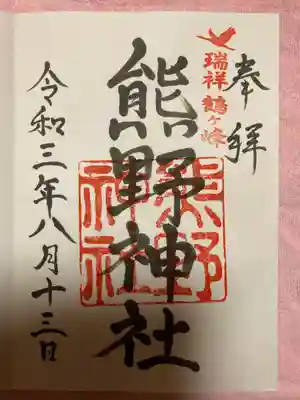 奉拝
瑞祥鶴ヶ峰
熊野神社
熊野
神社
令和三年八月十三日